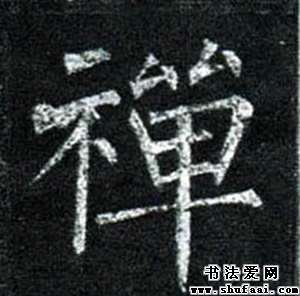 禪
书法爱网
www.shufaai.com